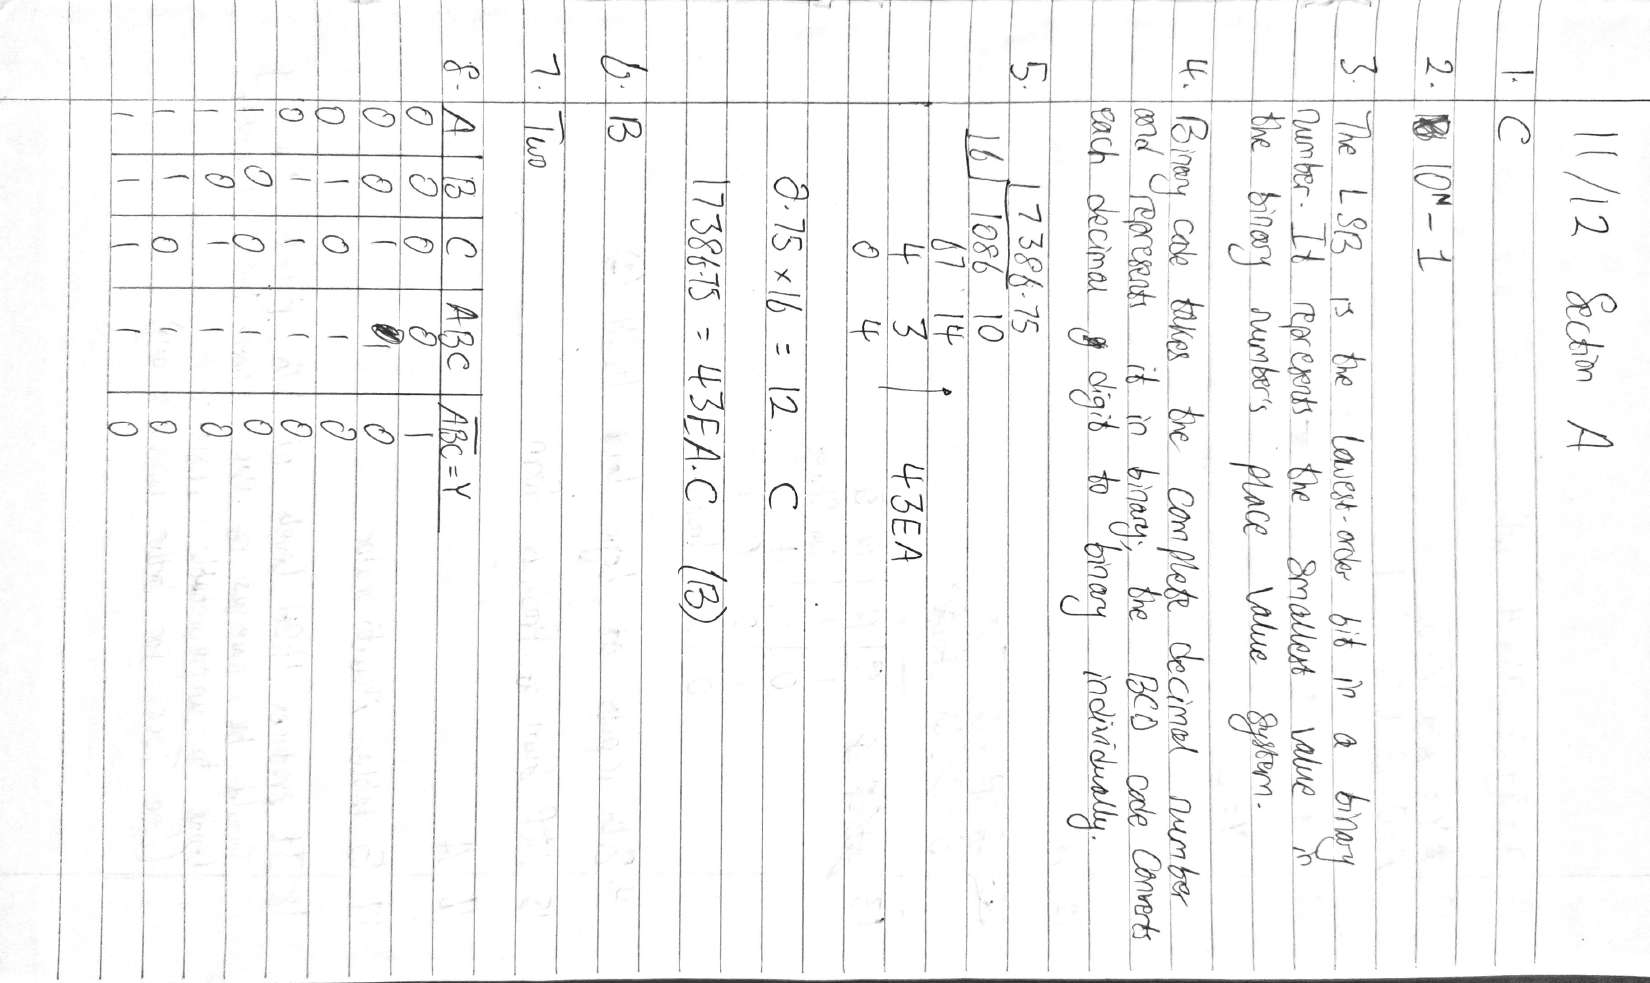 11/12 Section A
1. C
2. 10ᴺ - 1
3. The LSB is the lowest-order bit in a binary
number. It represents the smallest value in
the binary number's place value system.
4. Binary code takes the complete decimal number
and represents it in binary; the BCD code converts
each decimal digit to binary individually.
5. 17386.75
16 1086 10
67 14
4 3 43EA
0 4
0.75 × 16 = 12 C
17386.75 = 43EA.C (B)
6. B
7. Two
8. A B C ABC A̅B̅C̅=Y
0 0 0 0 1
0 0 1 1 0
0 1 0 1 0
0 1 1 1 0
1 0 0 1 0
1 0 1 1 0
1 1 0 1 0
1 1 1 1 0